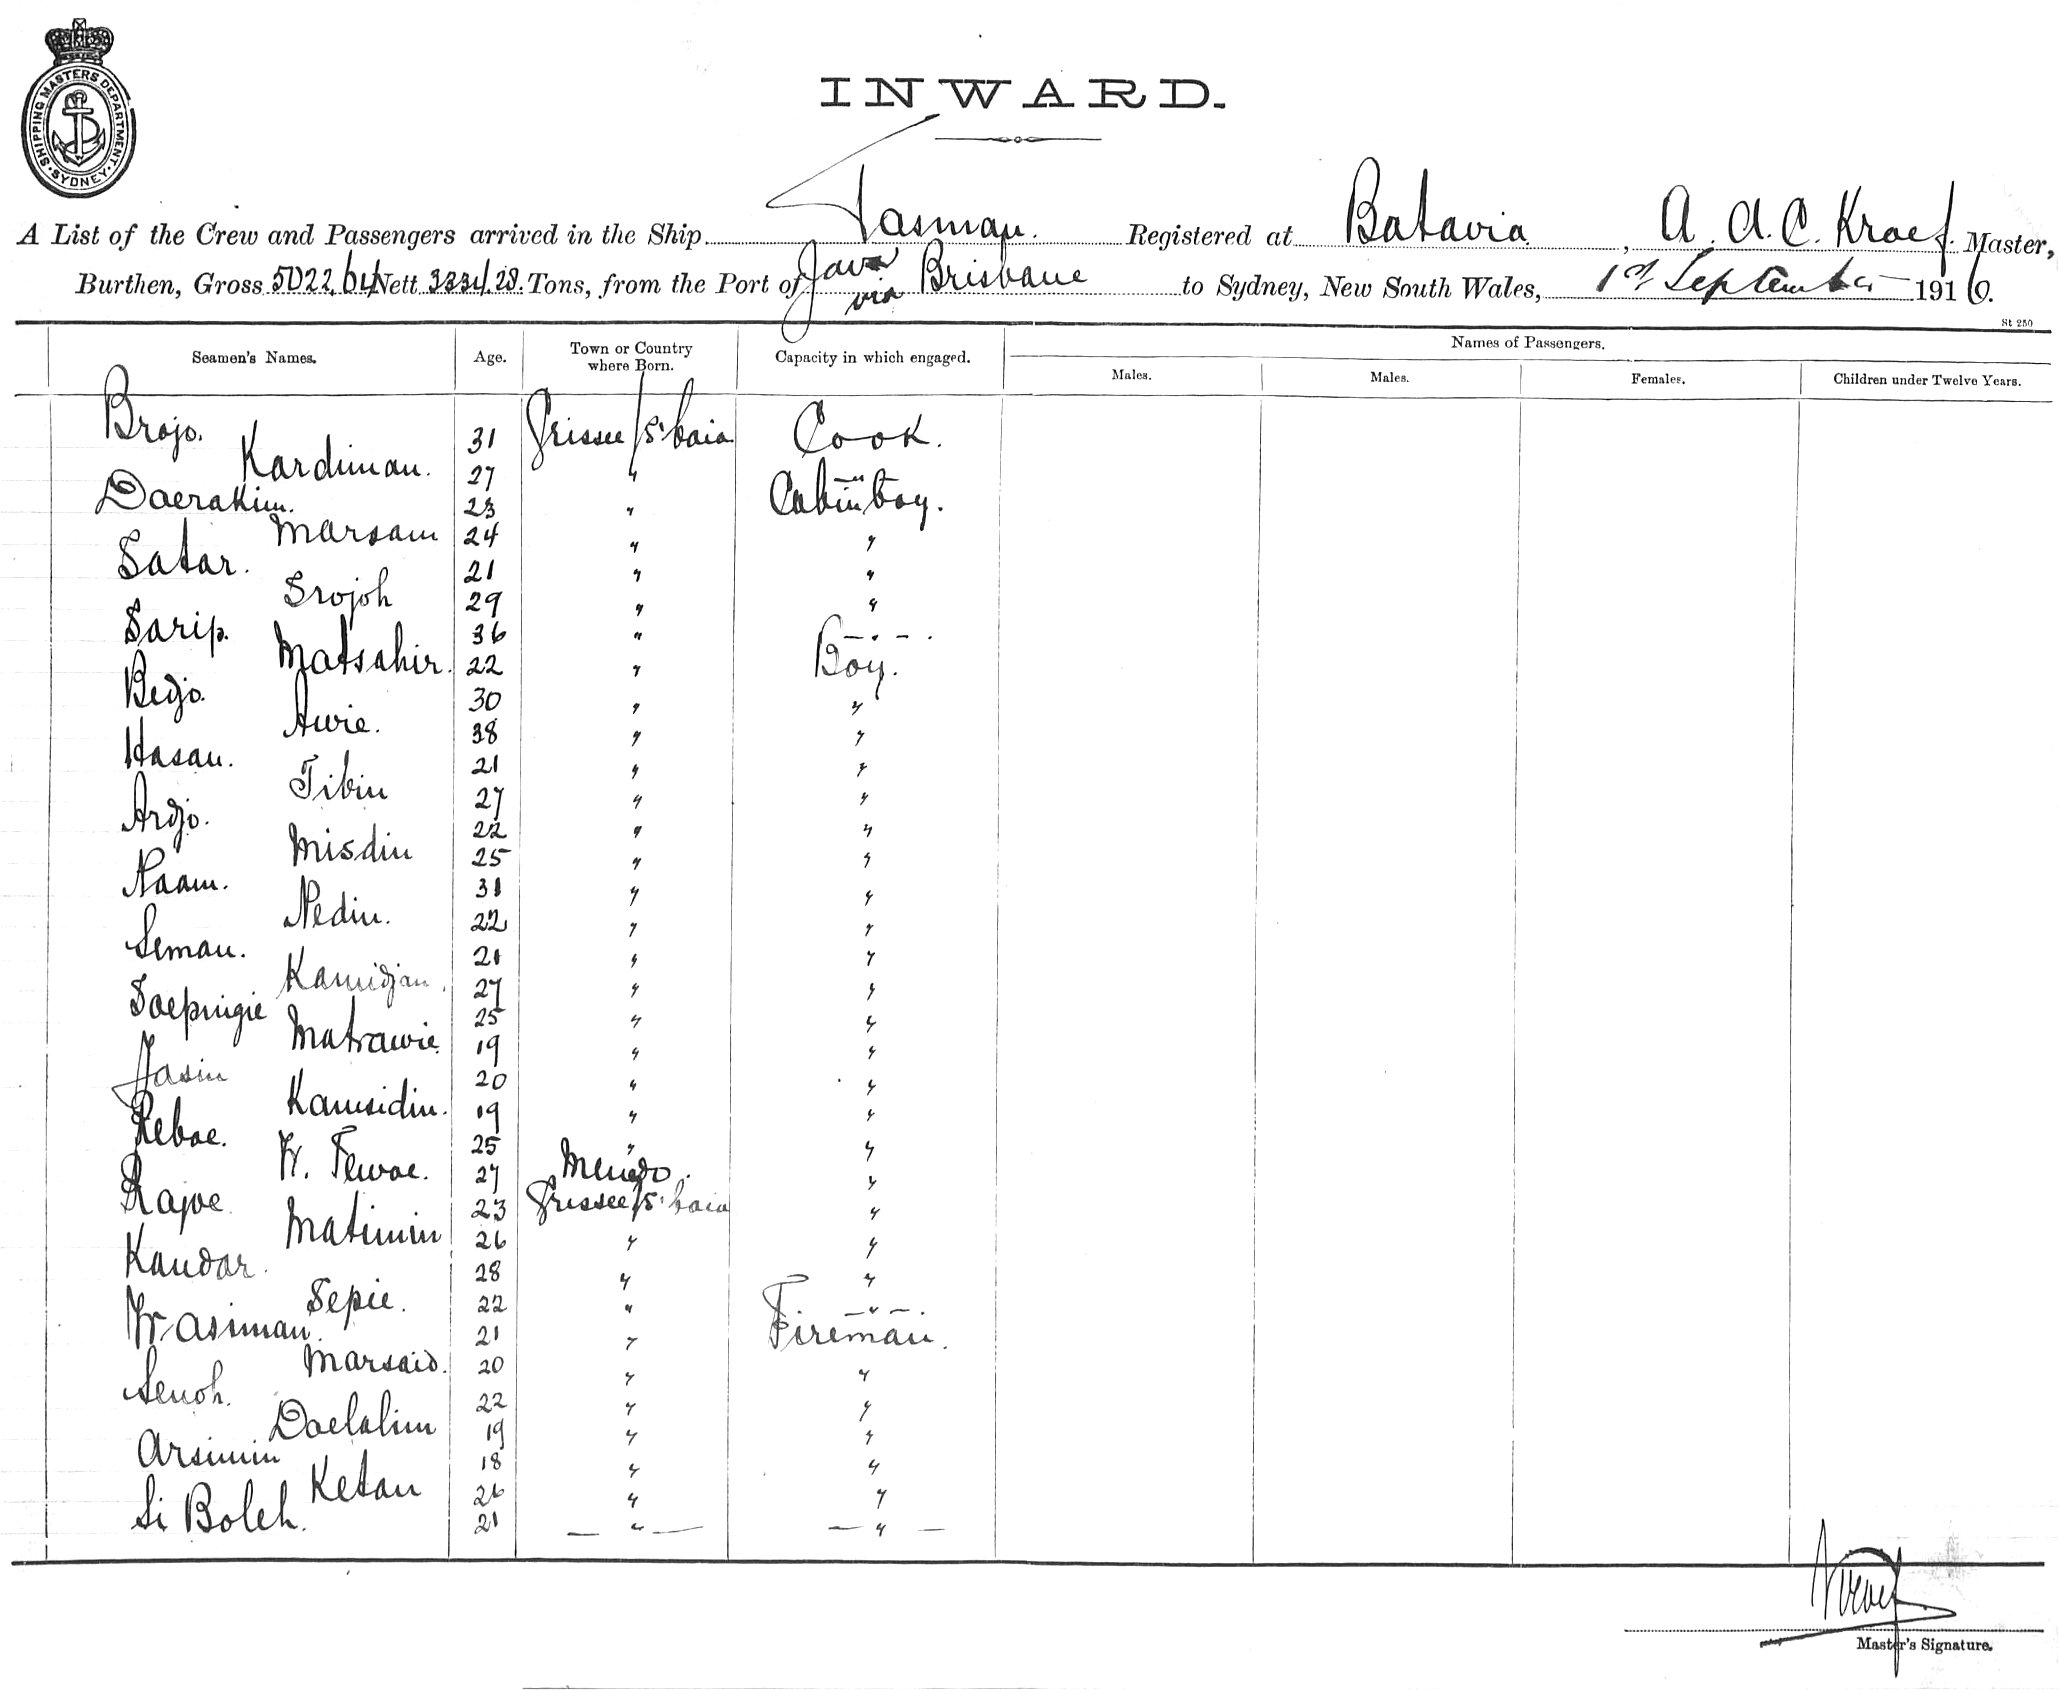 SHIPPING MASTERS DEPARTMENT
SYDNEY
INWARD.
A List of the Crew and Passengers arrived in the Ship Tasman. Registered at Batavia, A. A. C. Kroef. Master,
Burthen, Gross 5022,64 Nett 3334,28. Tons, from the Port of Java via Brisbane to Sydney, New South Wales, 1st September 1916.
St 250
Seamen's Names. Age. Town or Country where Born. Capacity in which engaged. Names of Passengers.
Males. Males. Females. Children under Twelve Years.
Brojo. 31 Grissee/S'baia Cook.
Kardiman. 27 " "
Daerakim. 23 " Cabin boy.
Marsam 24 " "
Satar. 21 " "
Srojoh 29 " "
Sarip. 36 " "
Matsahir. 22 " Boy.
Bedjo. 30 " "
Awie. 38 " "
Hasan. 21 " "
Tibin 27 " "
Ardjo. 22 " "
Misdin 25 " "
Naam. 31 " "
Nedin. 22 " "
Seman. 21 " "
Kamidjan. 27 " "
Soepingie 25 " "
Matrawie. 19 " "
Jasin 20 " "
Kamsidin. 19 " "
Reboe. 25 " "
W. Tewoe. 27 Menado. "
Rajoe 23 Grissee/S'baia "
Matimin 26 " "
Kandar. 28 " "
Sepie. 22 " "
Wasiman. 21 " Fireman.
Marsaid. 20 " "
Senoh. 22 " "
Daelalim 19 " "
Arsimin 18 " "
Ketan 26 " "
Si Boleh. 21 " "
Kroef
Master's Signature.